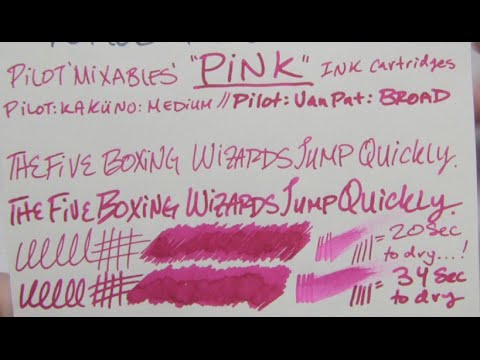 PILOT 'MIXABLES' "PINK" INK CARTRIDGES
PILOT: KAKÜNO: MEDIUM // Pilot: VanPat: BROAD
THE FIVE BOXING WIZARDS JUMP QUICKLY.
THE FIVE BOXING WIZARDS JUMP QUICKLY.
= 20 Sec
to dry...!
= 34 Sec
to dry